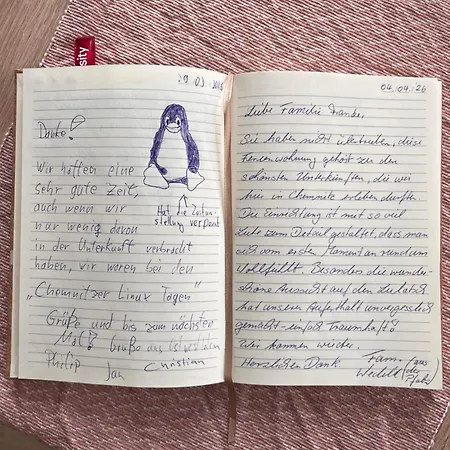 sity
29.03.2026
Danke!
Wir hatten eine
sehr gute Zeit,
auch wenn wir
nur wenig davon
in der Unterkunft verbracht
haben, wir waren bei den
„Chemnitzer Linux Tagen"
Grüße und bis zum nächsten
Mal! Grüße aus
Philip Jan Christian
Hat die Zeitum-
stellung verpennt
04.04.26
Liebe Familie Franke,
Sie haben nicht übertrieben, diese
Ferienwohnung gehört zu den
schönsten Unterkünften, die wir
hier in Chemnitz erleben durften.
Die Einrichtung ist mit so viel
Liebe zum Detail gestaltet, dass man
sich vom ersten Moment an rundum
wohlfühlt. Besonders die wunder-
schöne Aussicht auf den
hat unseren Aufenthalt unvergesslich
gemacht - einfach Traumhaft!
Wir kommen wieder.
Herzlichen Dank. Fam. (aus
der
Pfalz)